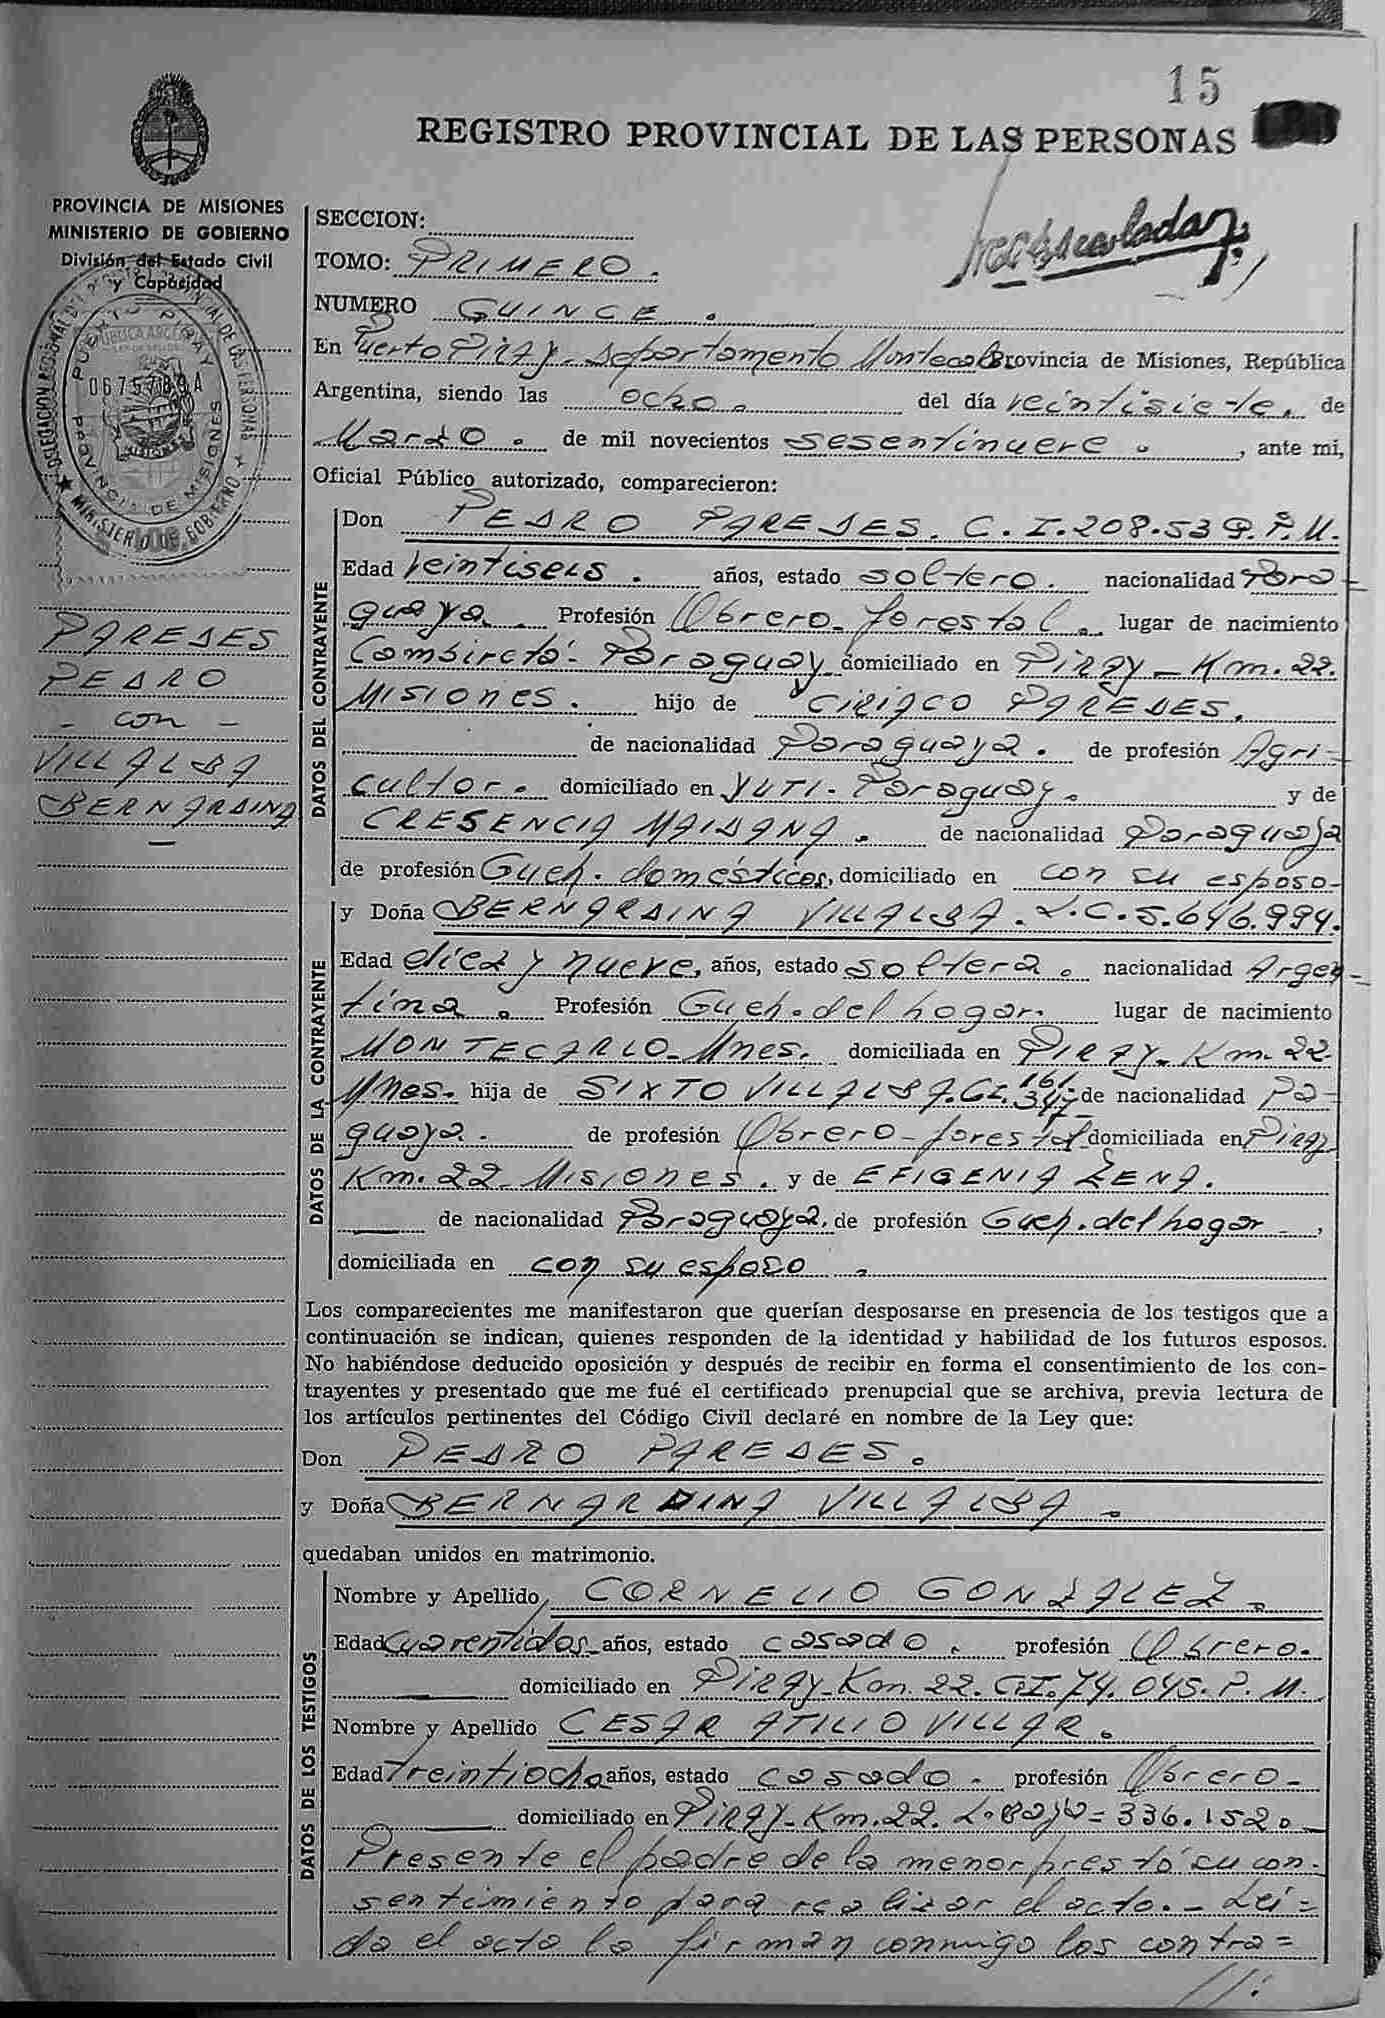 15
REGISTRO PROVINCIAL DE LAS PERSONAS
PROVINCIA DE MISIONES
MINISTERIO DE GOBIERNO
División del Estado Civil
y Capacidad
PUERTO PIRAY
PROVINCIA DE MISIONES
MINISTERIO DE GOBIERNO
PAREDES
PEDRO
- con -
VILLALBA
BERNARDINA
SECCION:
TOMO: PRIMERO.
NUMERO QUINCE.
En Puerto Piray - Departamento Montecarlo Provincia de Misiones, República
Argentina, siendo las ocho. del día veintisiete. de
Marzo. de mil novecientos sesentinueve. , ante mi,
Oficial Público autorizado, comparecieron:
DATOS DEL CONTRAYENTE
Don PEDRO PAREDES. C.I. 208.539.P.M.
Edad veintiseis. años, estado soltero. nacionalidad Para-
guaya. Profesión Obrero-forestal. lugar de nacimiento
Paraguay domiciliado en Piray-Km.22.
Misiones. hijo de CIRIACO PAREDES.
de nacionalidad Paraguaya. de profesión Agri=
cultor. domiciliado en YUTI-Paraguay. y de
CRESENCIA MAIDANA. de nacionalidad Paraguaya
de profesión Queh. domésticos, domiciliado en con su esposo-
DATOS DE LA CONTRAYENTE
y Doña BERNARDINA VILLALBA. L.C.5.646.994.
Edad diez y nueve, años, estado soltera. nacionalidad Argen-
tina. Profesión Queh. del hogar. lugar de nacimiento
MONTECARLO-Mnes. domiciliada en Piray-Km.22-
Mnes. hija de SIXTO VILLALBA.CI. 161. de nacionalidad Pa-
guaya. de profesión Obrero-forestal domiciliada en Piray
Km.22-Misiones. y de EFIGENIA ZENA.
de nacionalidad Paraguaya, de profesión Queh. del hogar-,
domiciliada en con su esposo.
Los comparecientes me manifestaron que querían desposarse en presencia de los testigos que a
continuación se indican, quienes responden de la identidad y habilidad de los futuros esposos.
No habiéndose deducido oposición y después de recibir en forma el consentimiento de los con-
trayentes y presentado que me fué el certificado prenupcial que se archiva, previa lectura de
los artículos pertinentes del Código Civil declaré en nombre de la Ley que:
Don PEDRO PAREDES.
y Doña BERNARDINA VILLALBA.
quedaban unidos en matrimonio.
DATOS DE LOS TESTIGOS
Nombre y Apellido CORNELIO GONZALEZ.
Edad Cuarentidos años, estado casado. profesión Obrero.
domiciliado en Piray-Km.22. C.I. 74.045.P.M.
Nombre y Apellido CESAR ATILIO VILLAR.
Edad Treintiocho años, estado casado. profesión Obrero-
domiciliado en Piray-Km.22. 336.1520
Presente el padre de la menor prestó su con-
sentimiento para realizar el acto.- Leí=
da el acta la firman conmigo los contra=